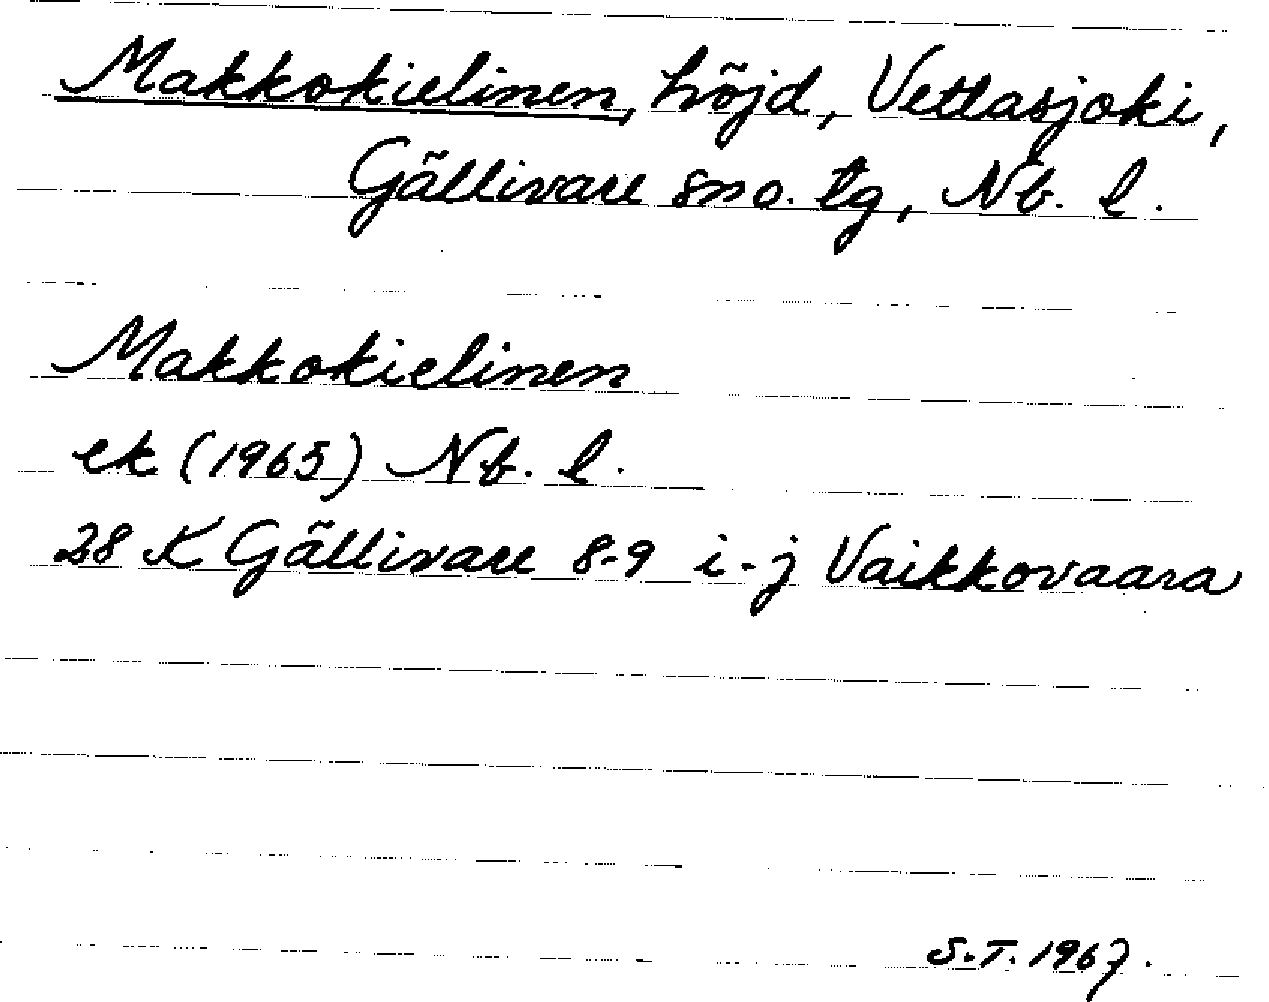 Makkokielinen, höjd, Vettasjoki,
Gällivare sno. tg, Nb. l.
Makkokielinen
ek (1965) Nb. l.
28 K Gällivare 8-9 i-j Vaikkovaara
S.T. 1967.